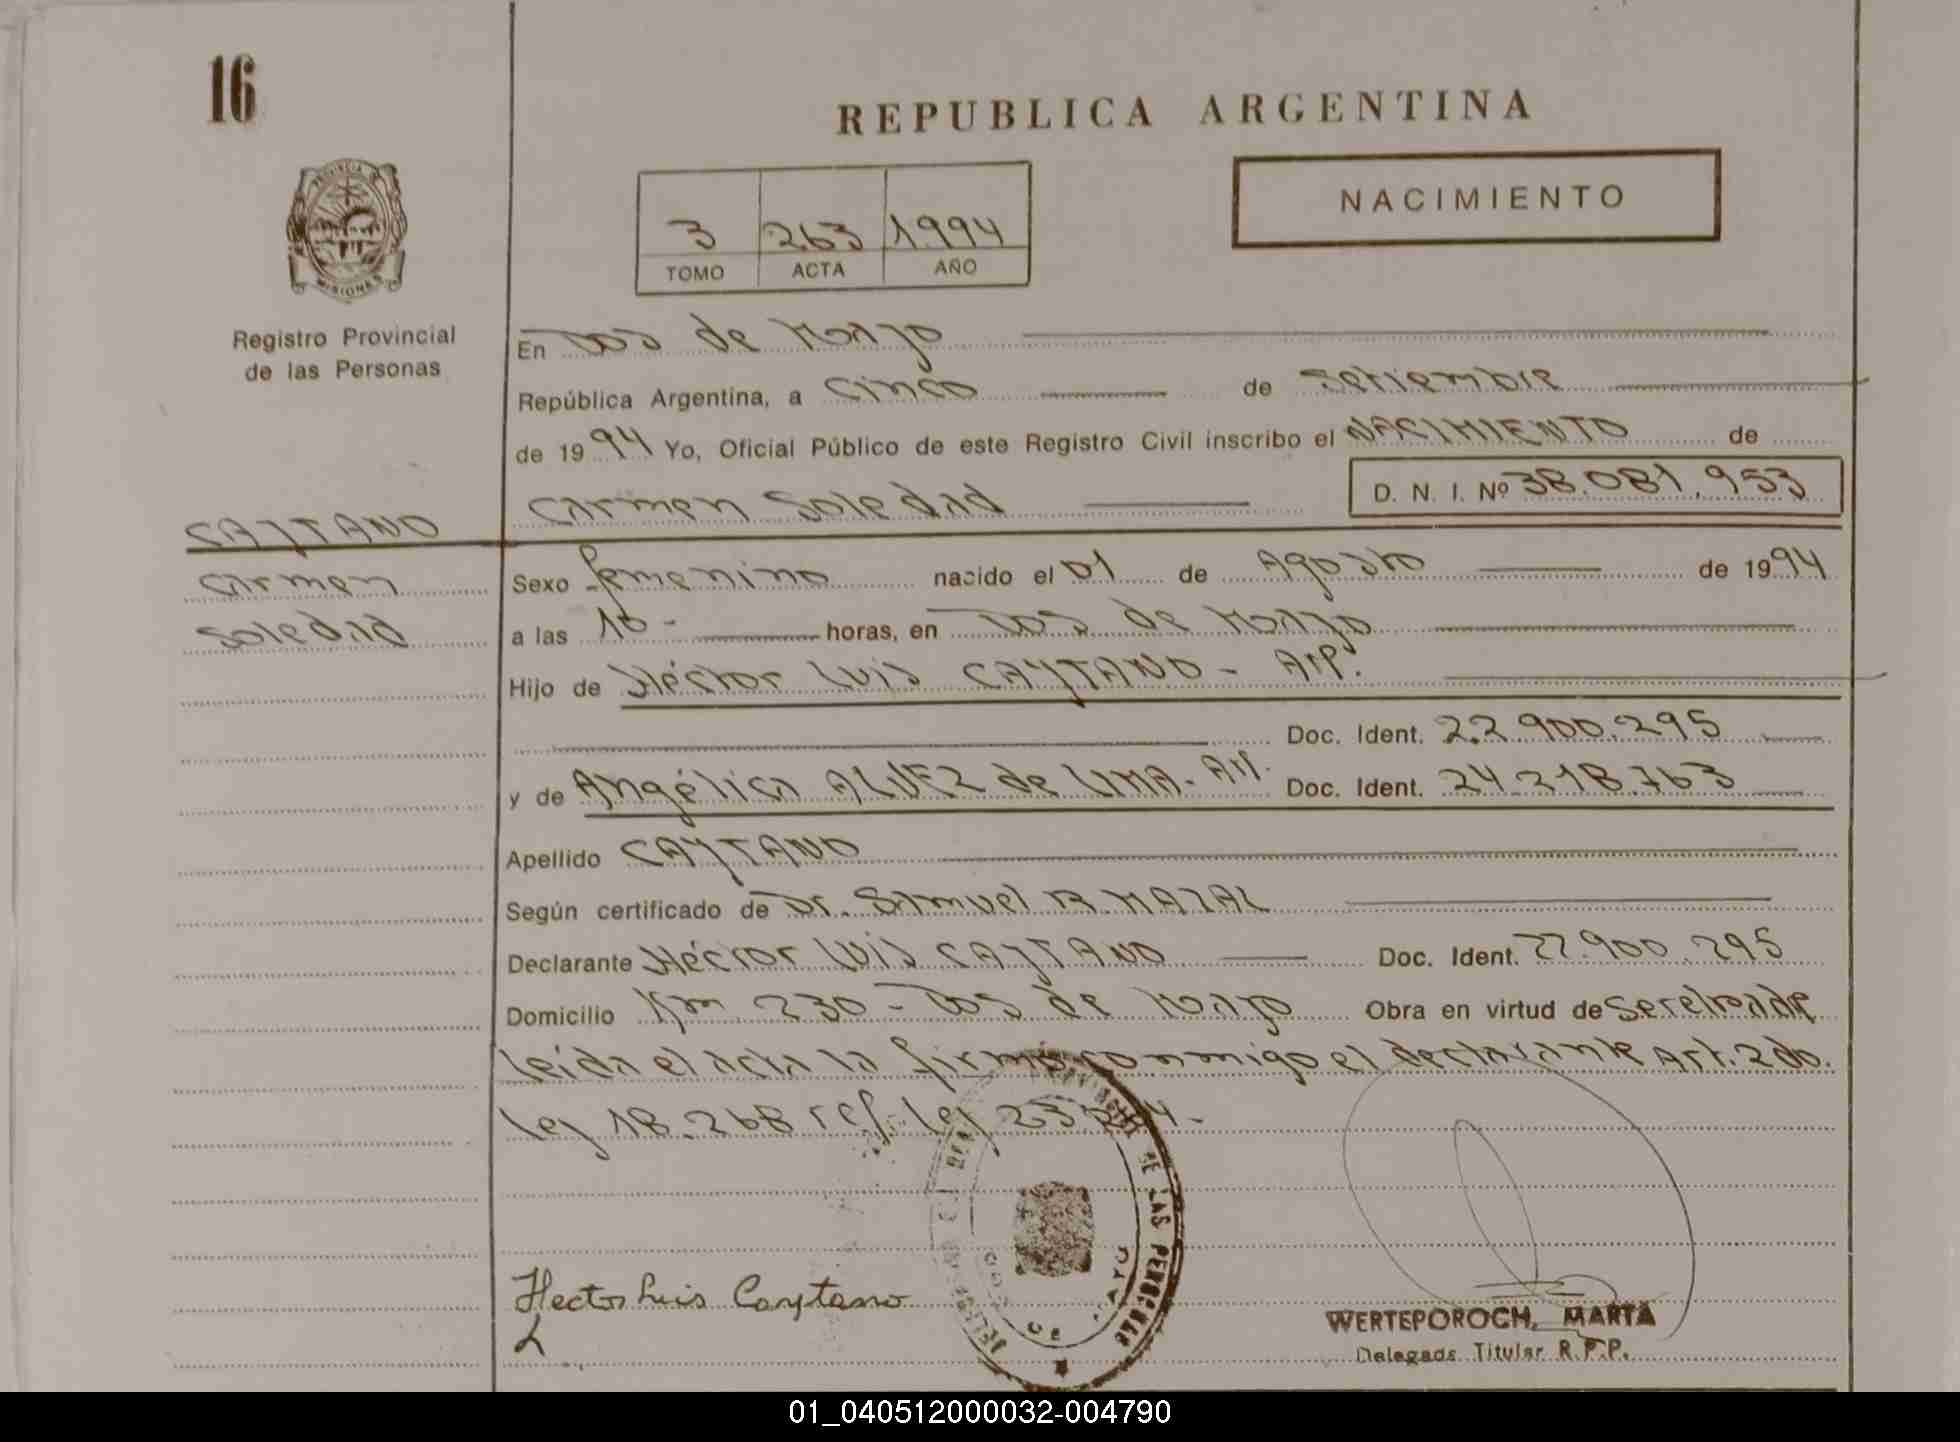 16
REPUBLICA ARGENTINA
NACIMIENTO
3 263 1994
TOMO ACTA AÑO
PROVINCIA
MISIONES
Registro Provincial
de las Personas
En Dos de Mayo
República Argentina, a cinco de setiembre
de 1994 Yo, Oficial Público de este Registro Civil inscribo el NACIMIENTO de
Carmen Soledad D. N. I. Nº 38.081.953
CAYTANO
Carmen
Soledad
Sexo femenino nacido el 01 de Agosto de 1994
a las 10- horas, en Dos de Mayo
Hijo de Héctor Luis CAYTANO - Arg.
Doc. Ident. 22.900.295
y de Angélica ALVEZ de LIMA- Arg. Doc. Ident. 24.218.763
Apellido CAYTANO
Según certificado de Dr. Samuel R MAZAL
Declarante Héctor Luis CAYTANO Doc. Ident. 22.900.295
Domicilio Km 230 - Dos de Mayo Obra en virtud de
leída el acta la firma conmigo el declarante Art. 2do.
ley 18.268 ref. ley
Hector Luis Caytano
DE LAS PERSONAS
WERTEPOROCH, MARTA
Delegada Titular R.P.P.
01_040512000032-004790